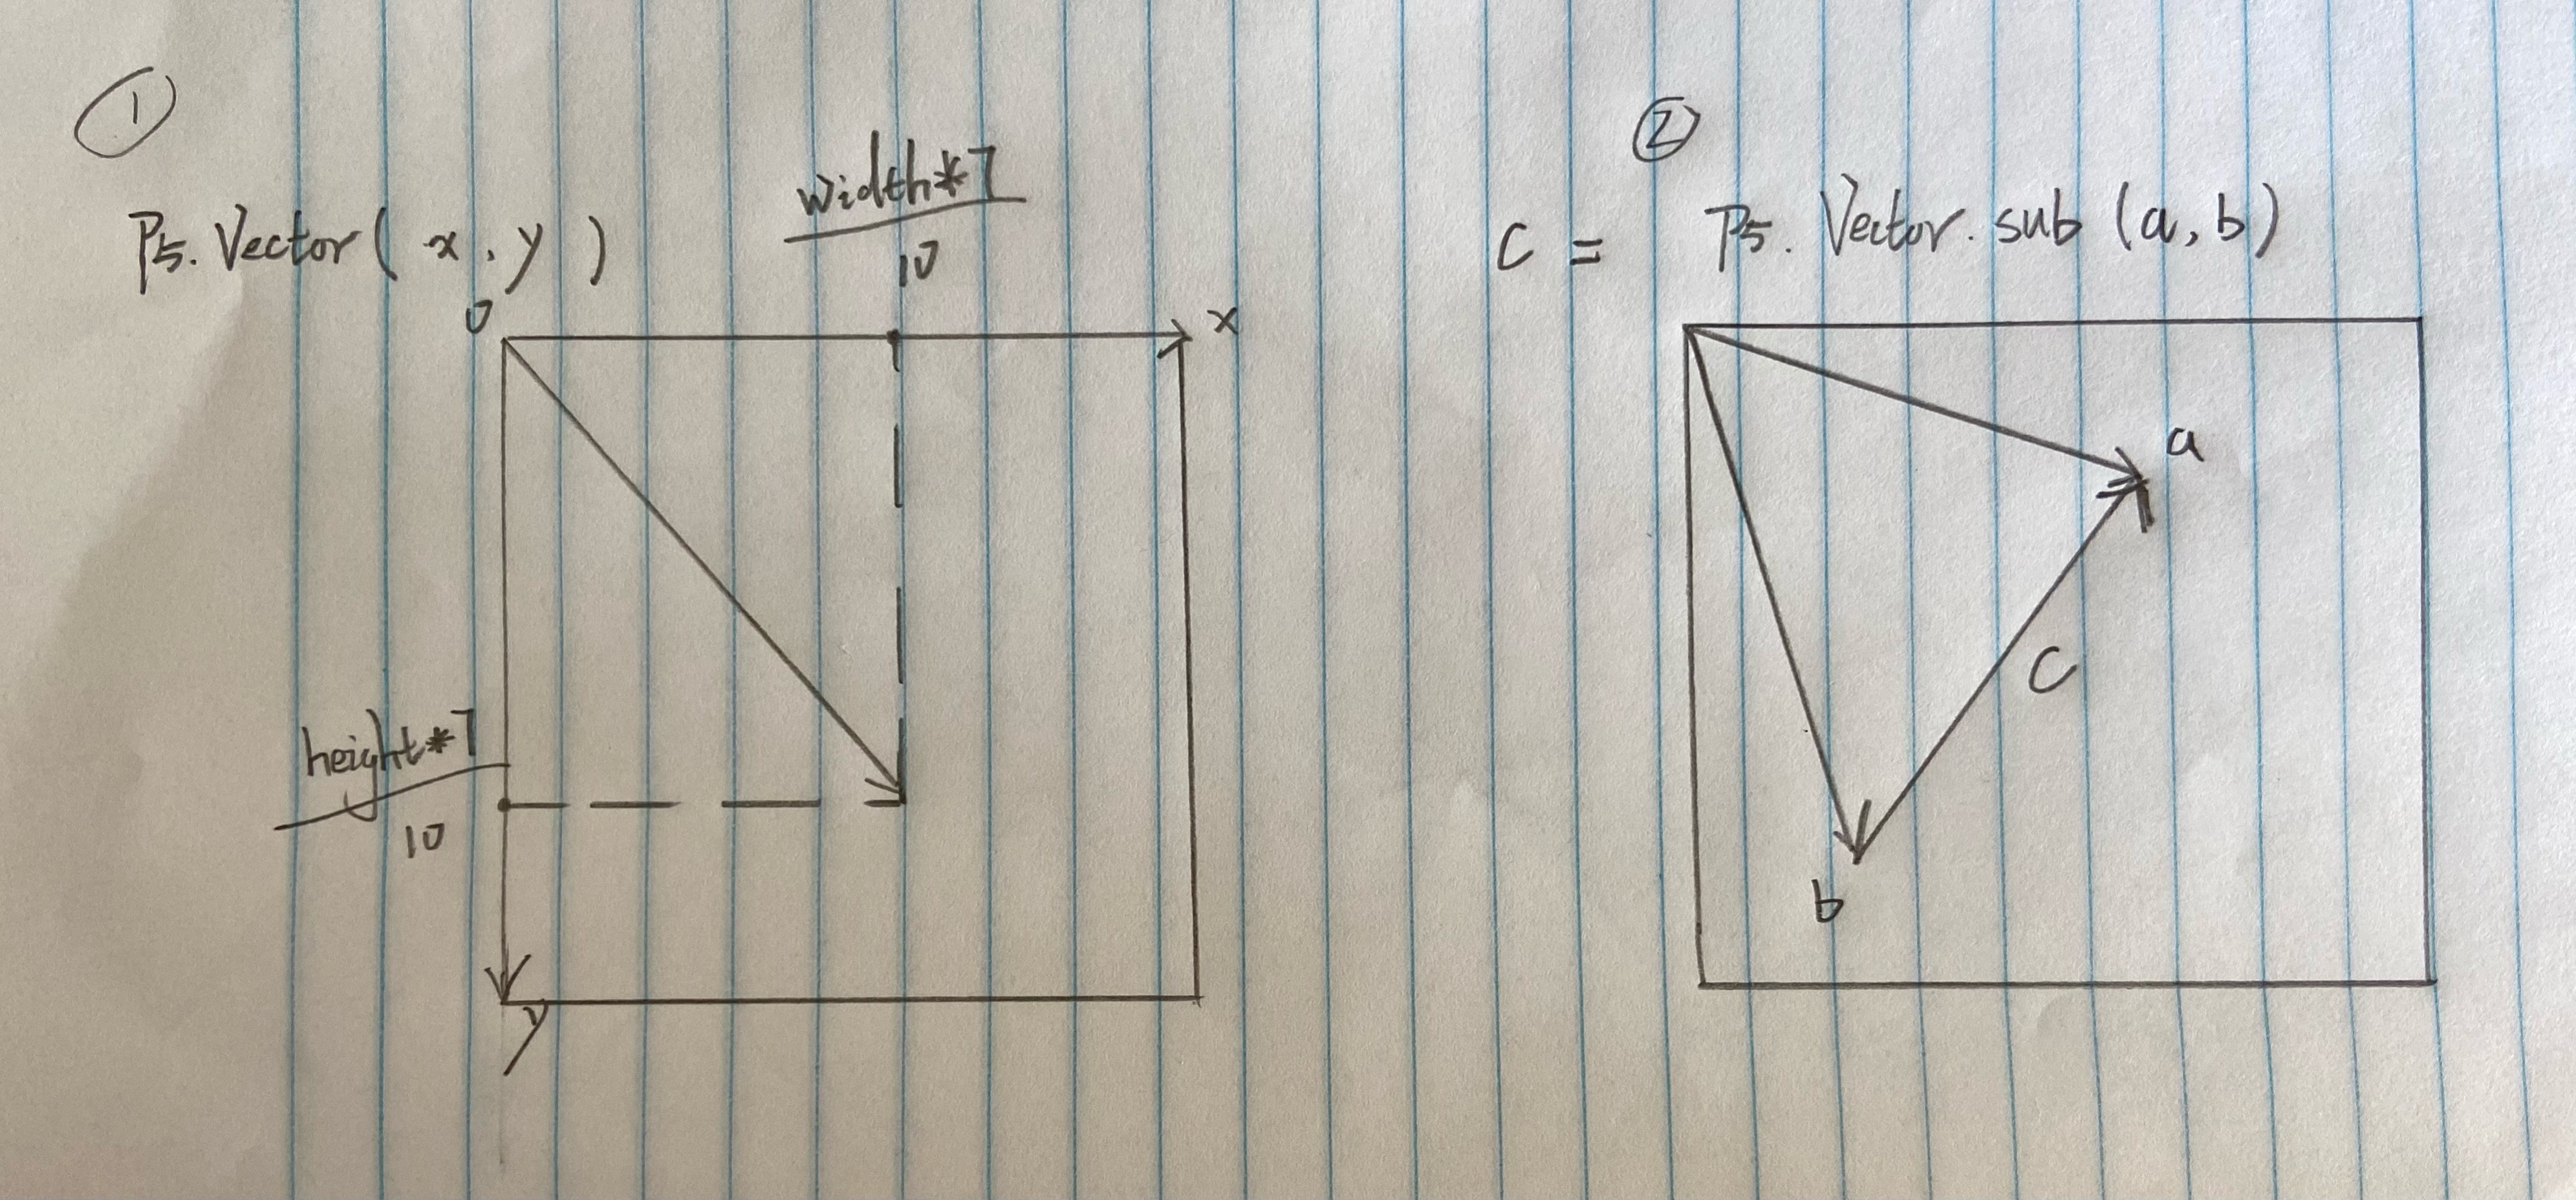 ①
P5. Vector ( x , y )
width*7
10
0
x
height*7
10
y
②
C = P5. Vector. sub (a, b)
a
C
b